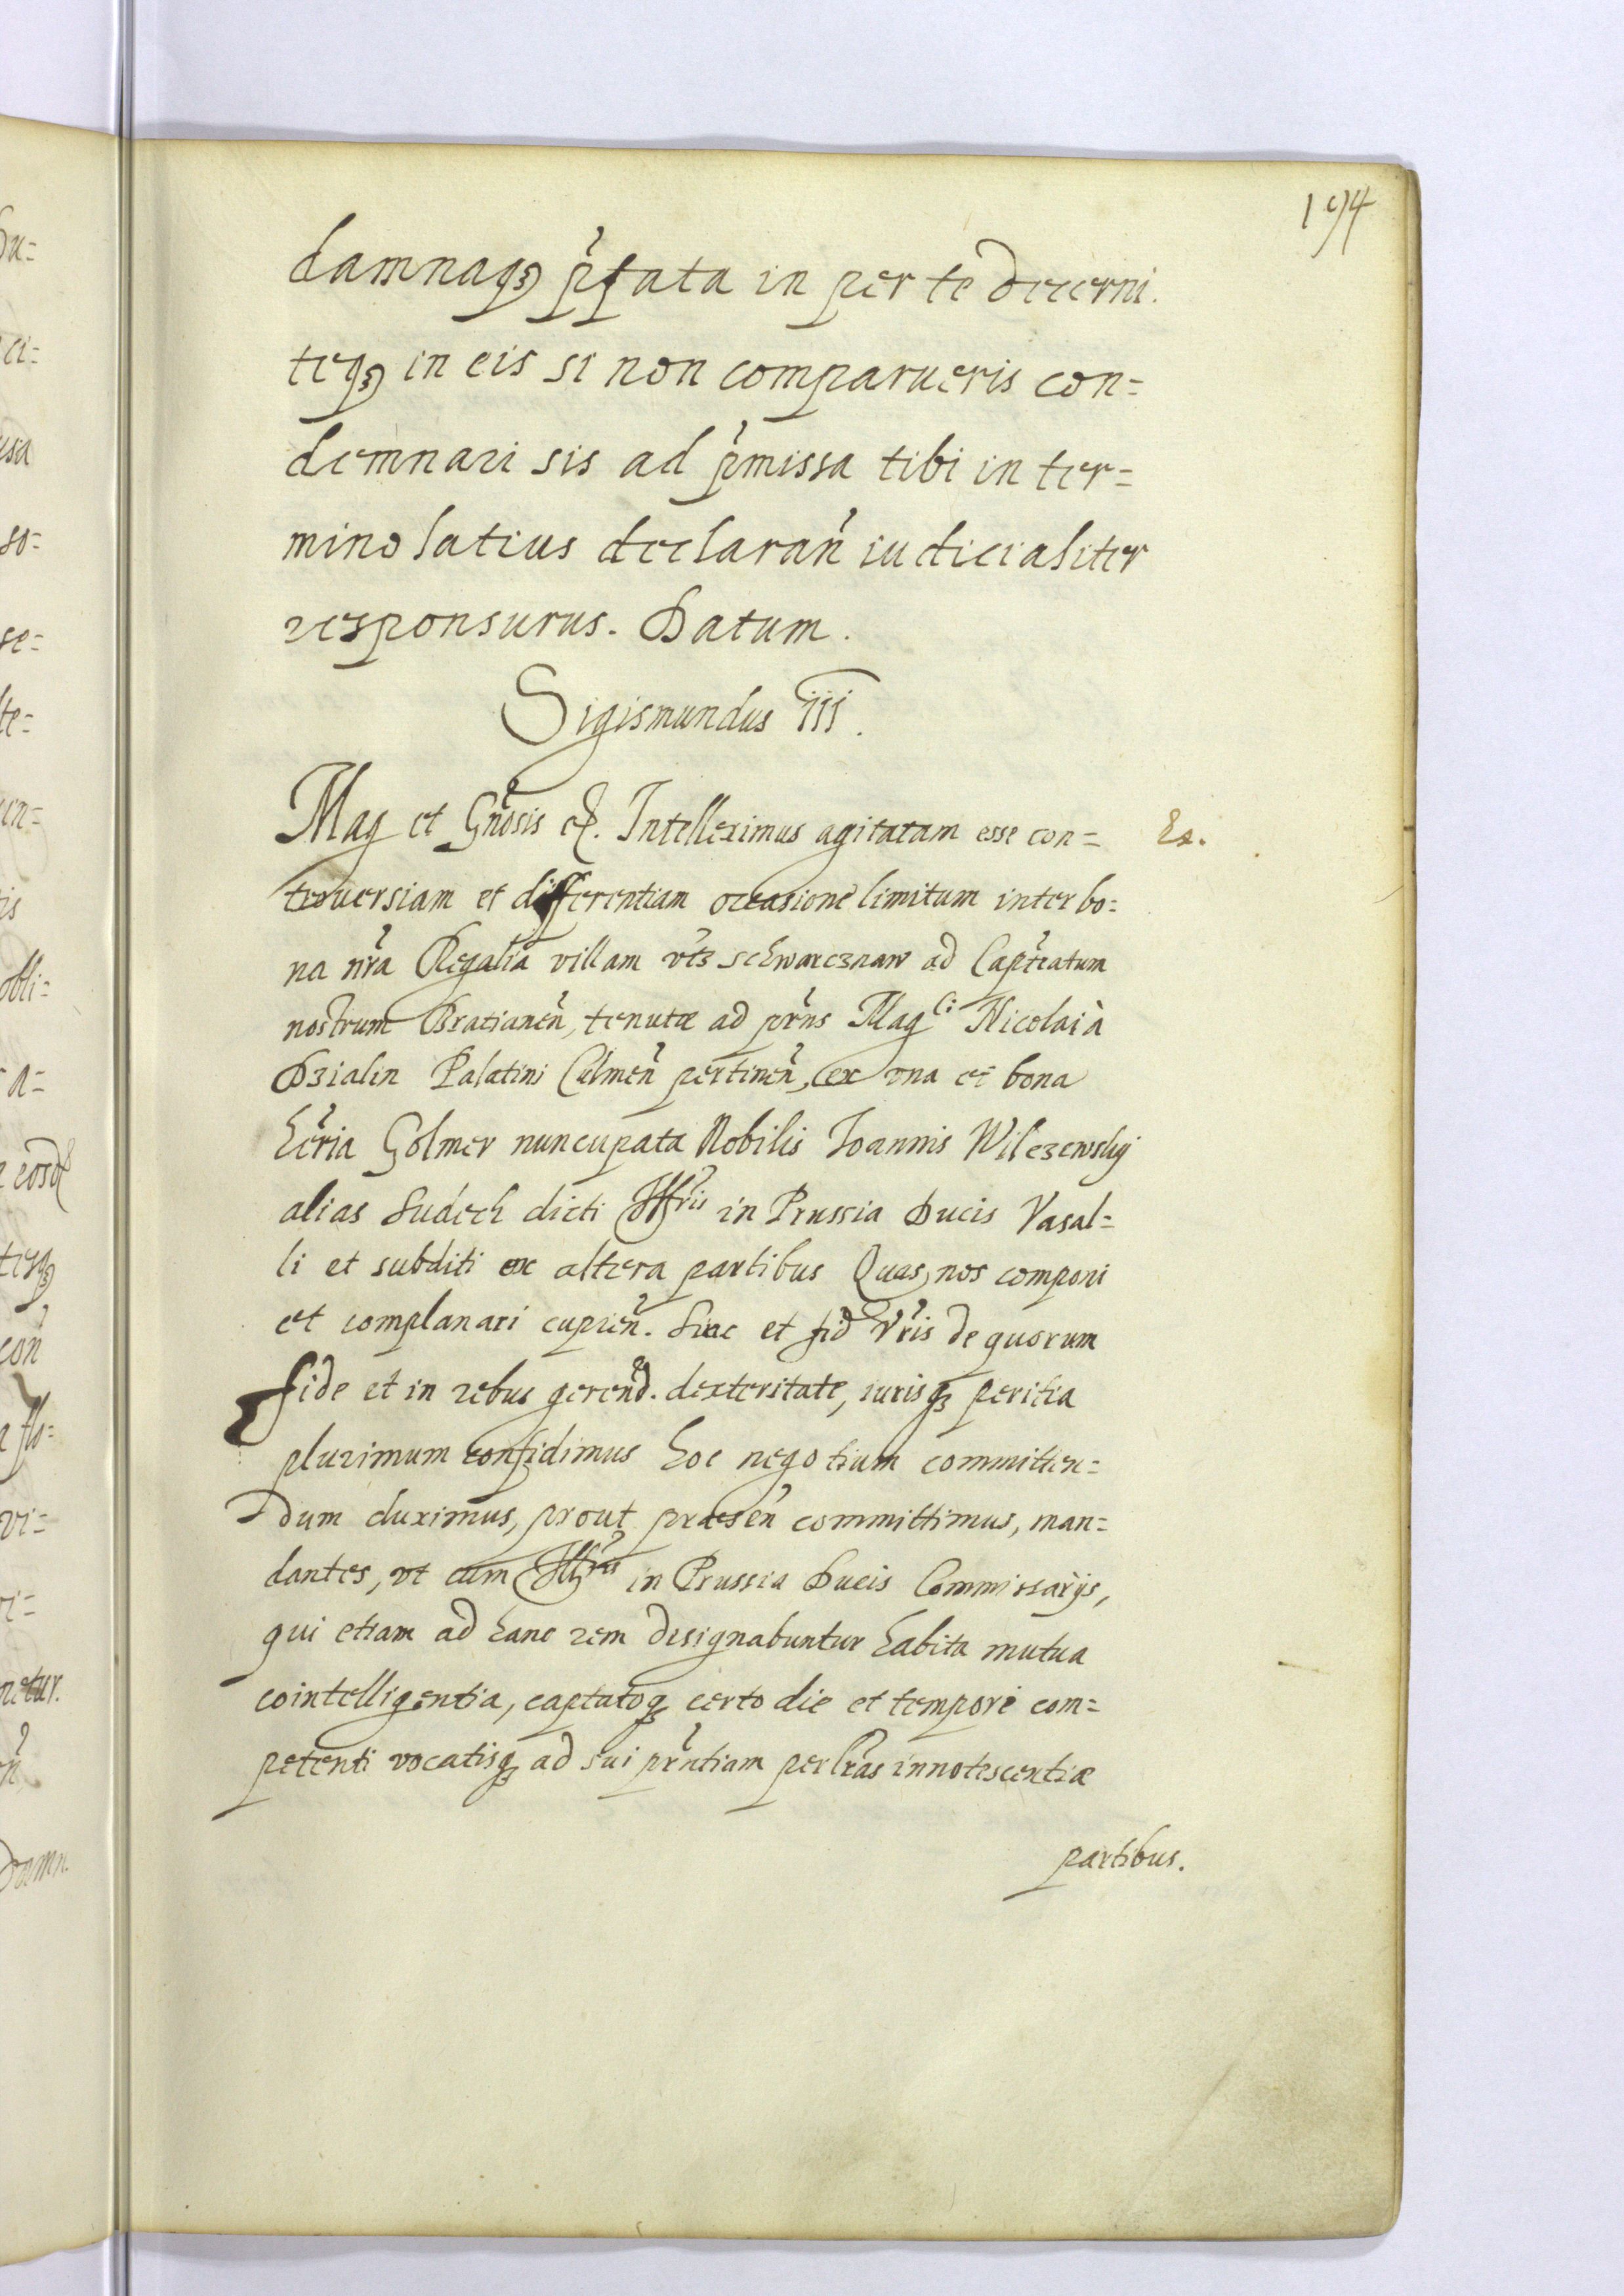 194
damnaqȝ p̃fata in per te decerni.
teqȝ in eis si non comparueris con=
demnari sis ad p̃missa tibi in ter=
mino latius declarañ iudicialiter
responsurus. Datum.
Sigismundus iii.
Mag et Gñosis etc. Intelleximus agitatam esse con=
trouersiam et differentiam occasione limitum inter bo=
na nr̃a Regalia villam vtȝ Schwarcznaw ad Capt̃eatum
nostrum Bratianeñ, tenutæ ad pr̃ns Mag^ci Nicolai à
Dzialin Palatini Culmeñ pertineñ, ex vna et bona
her̃ia Golmer nuncupata Nobilis Joannis Wilczewskij
alias Sudech dicti Ill^ris in Prussia Ducis Vasal=
li et subditi ex altera partibus Quas nos componi
et complanari cupieñ. Sinc et fid Vr̃is de quorum
fide et in rebus gereñd. dexteritate, iurisqȝ peritia
plurimum confidimus hoc negotium committen=
dum duximus, prout præseñ committimus, man=
dantes, vt cum Ill^ris in Prussia Ducis Commissarijs,
qui etiam ad hanc rem designabuntur habita mutua
cointelligentia, captatoqȝ certo die et tempore com=
petenti vocatisqȝ ad sui pr̃ntiam per lr̃as innotescentiæ
partibus.